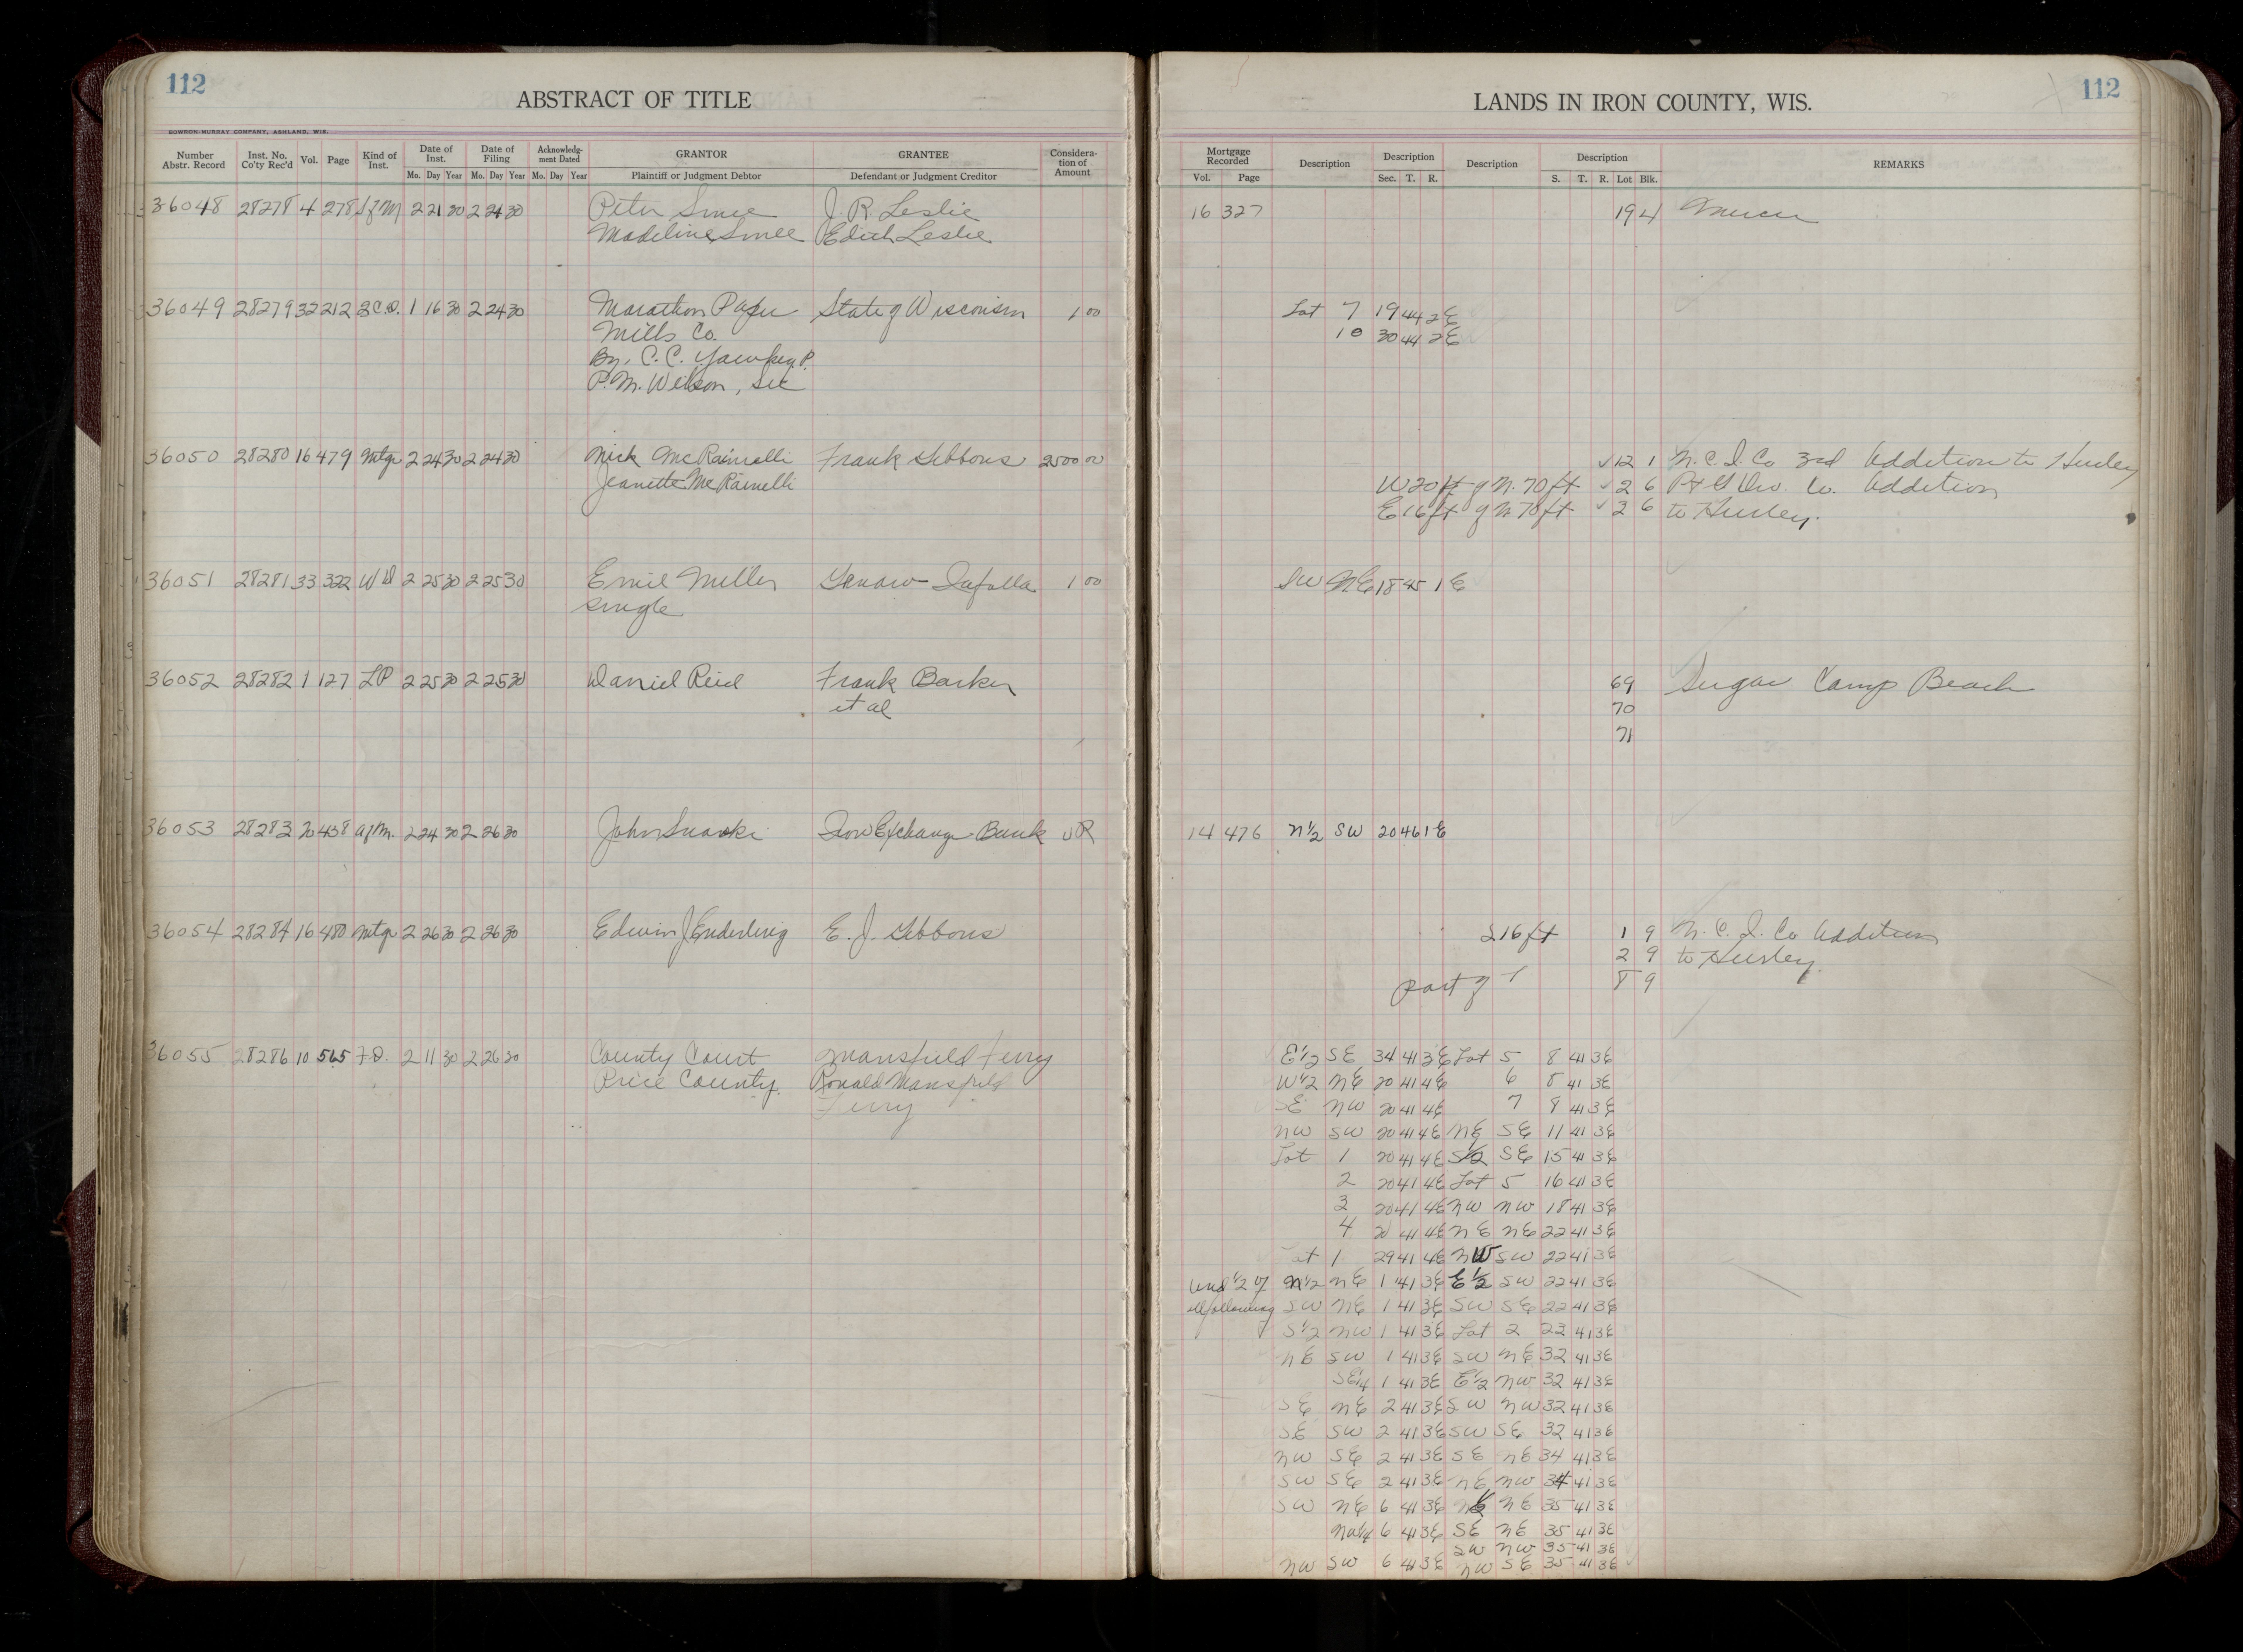 112
ABSTRACT OF TITLE
BOWRON-MURRAY COMPANY, ASHLAND, WIS.
Number Abstr. Record | Inst. No. Co'ty Rec'd | Vol. | Page | Kind of Inst. | Date of Inst. Mo. Day Year | Date of Filing Mo. Day Year | Acknowledgment Dated Mo. Day Year | GRANTOR Plaintiff or Judgment Debtor | GRANTEE Defendant or Judgment Creditor | Consideration of Amount
36048 28278 4 278 2 21 30 2 24 30 Peter Smee J. R. Leslie
Madeline Smee Edith Leslie
36049 28279 32 212 2C.D. 1 16 30 2 24 30 Marathon Paper State of Wisconsin 1 00
Mills Co.
By, C. C. Yawkey P.
P. M. Wilson, Sec
36050 28280 16 479 Mtge 2 24 30 2 24 30 Nick McRainelli Frank Gibbons 2500 00
Jeanette McRainelli
36051 28281 33 322 WD 2 25 30 2 25 30 Emil Miller 1 00
single
36052 28282 1 127 LP 2 25 30 2 25 30 Daniel Reid Frank Barker
et al
36053 28283 20 438 2 24 30 2 26 30 John Iron Exchange Bank
36054 28284 16 480 Mtge 2 26 30 2 26 30 Edwin J Enderling E. J. Gibbons
36055 28286 10 565 F.D. 2 11 30 2 26 30 County Court Mansfield Ferry
Price County. Ronald Mansfield
Ferry
112
LANDS IN IRON COUNTY, WIS.
Mortgage Recorded Vol. Page | Description | Description Sec. T. R. | Description | Description S. T. R. Lot Blk. | REMARKS
16 327 19 4 Mercer
Lot 7 19 44 2E
10 30 44 2E
12 1 N. C. I. Co 3rd Addition to Hurley
W 20 ft of N. 70 ft 2 6 Dev. Co. Addition
E 16 ft of N 70 ft 3 6 to Hurley.
SW NE 18 45 1 E
69 Sugar Camp Beach
70
71
14 476 N½ SW 20 46 1 E
S 16 ft 1 9 N. C. I. Co Addition
2 9 to Hurley.
Part of 8 9
E½ SE 34 41 3E Lot 5 8 41 3E
W½ NE 20 41 4E 6 8 41 3E
SE NW 20 41 4E 7 8 41 3E
NW SW 20 41 4E NE SE 11 41 3E
Lot 1 20 41 4E S½ SE 15 41 3E
2 20 41 4E Lot 5 16 41 3E
3 20 41 4E NW NW 18 41 3E
4 20 41 4E NE NE 22 41 3E
Lot 1 29 41 4E NW SW 22 41 3E
Und ½ of N½ NE 1 41 3E E½ SW 22 41 3E
all following SW NE 1 41 3E SW SE 22 41 3E
S½ NW 1 41 3E Lot 2 23 41 3E
NE SW 1 41 3E SW NE 32 41 3E
SE¼ 1 41 3E E½ NW 32 41 3E
SE NE 2 41 3E SW NW 32 41 3E
SE SW 2 41 3E SW SE 32 41 3E
NW SE 2 41 3E SE NE 34 41 3E
SW SE 2 41 3E NE NW 34 41 3E
SW NE 6 41 3E NE 35 41 3E
NW¼ 6 41 3E SE NE 35 41 3E
SW NW 35 41 3E
NW SW 6 41 3E NW SE 35 41 3E